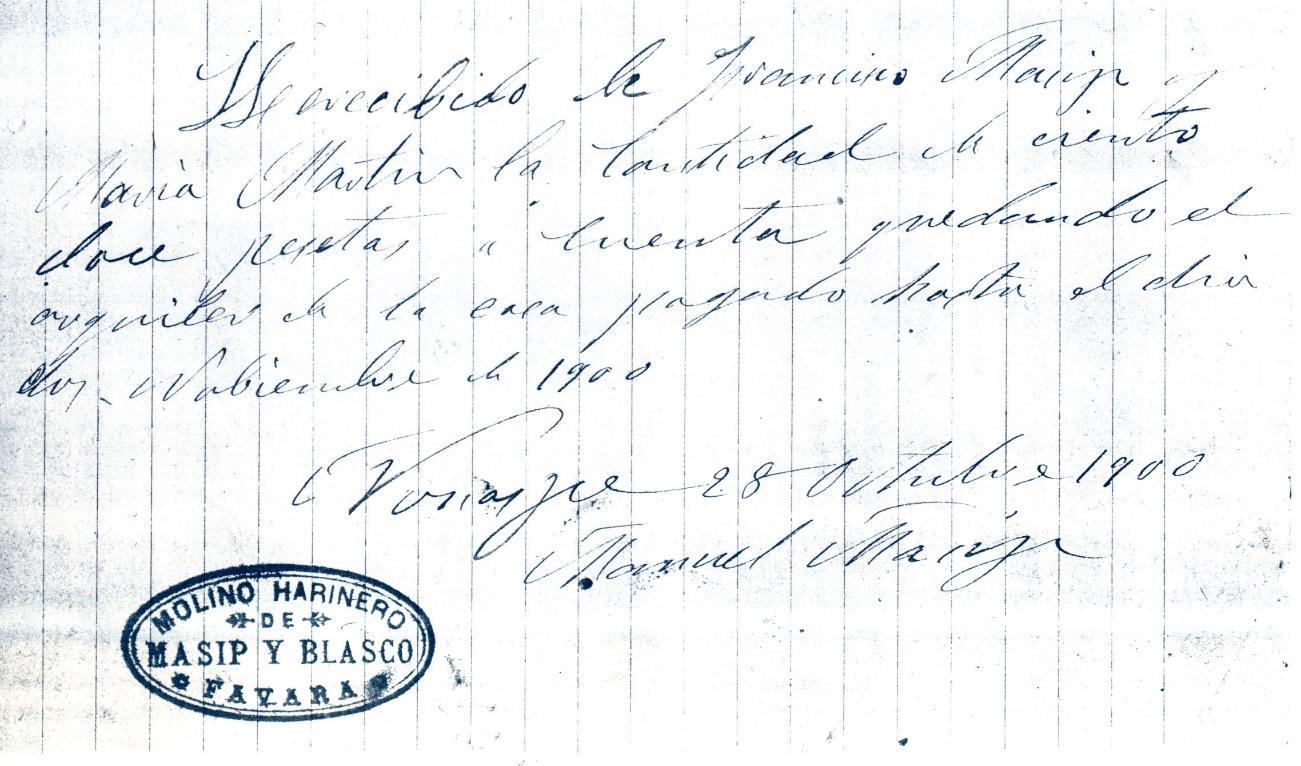 He recibido de Francisco Masip y
Maria Martin la Cantidad de ciento
doce pesetas a cuenta quedando el
arquiler de la casa pagado hasta el dia
dos Nobiembre de 1900
28 Octubre 1900
Manuel Masip
MOLINO HARINERO
DE
MASIP Y BLASCO
FAVARA